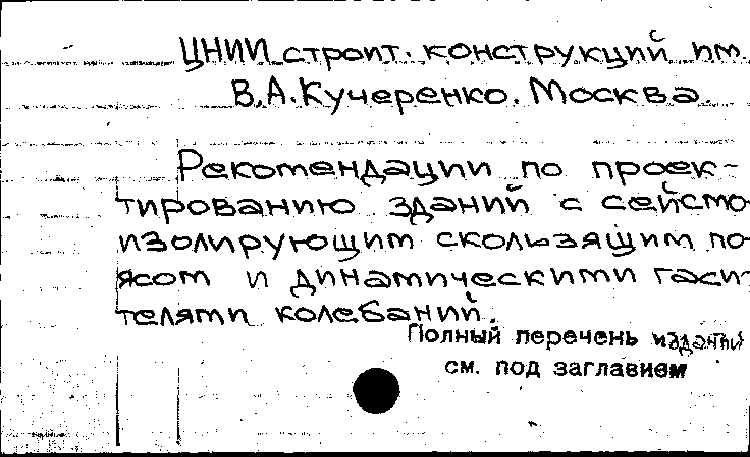 ЦНИИ строит. конструкций им.
В.А. Кучеренко. Москва.
Рекомендации по проек-
тированию зданий с сейсмо
изолирующим скользящим по
ясом и динамическими гаси
телями колебаний.
Полный перечень изданий
см. под заглавием